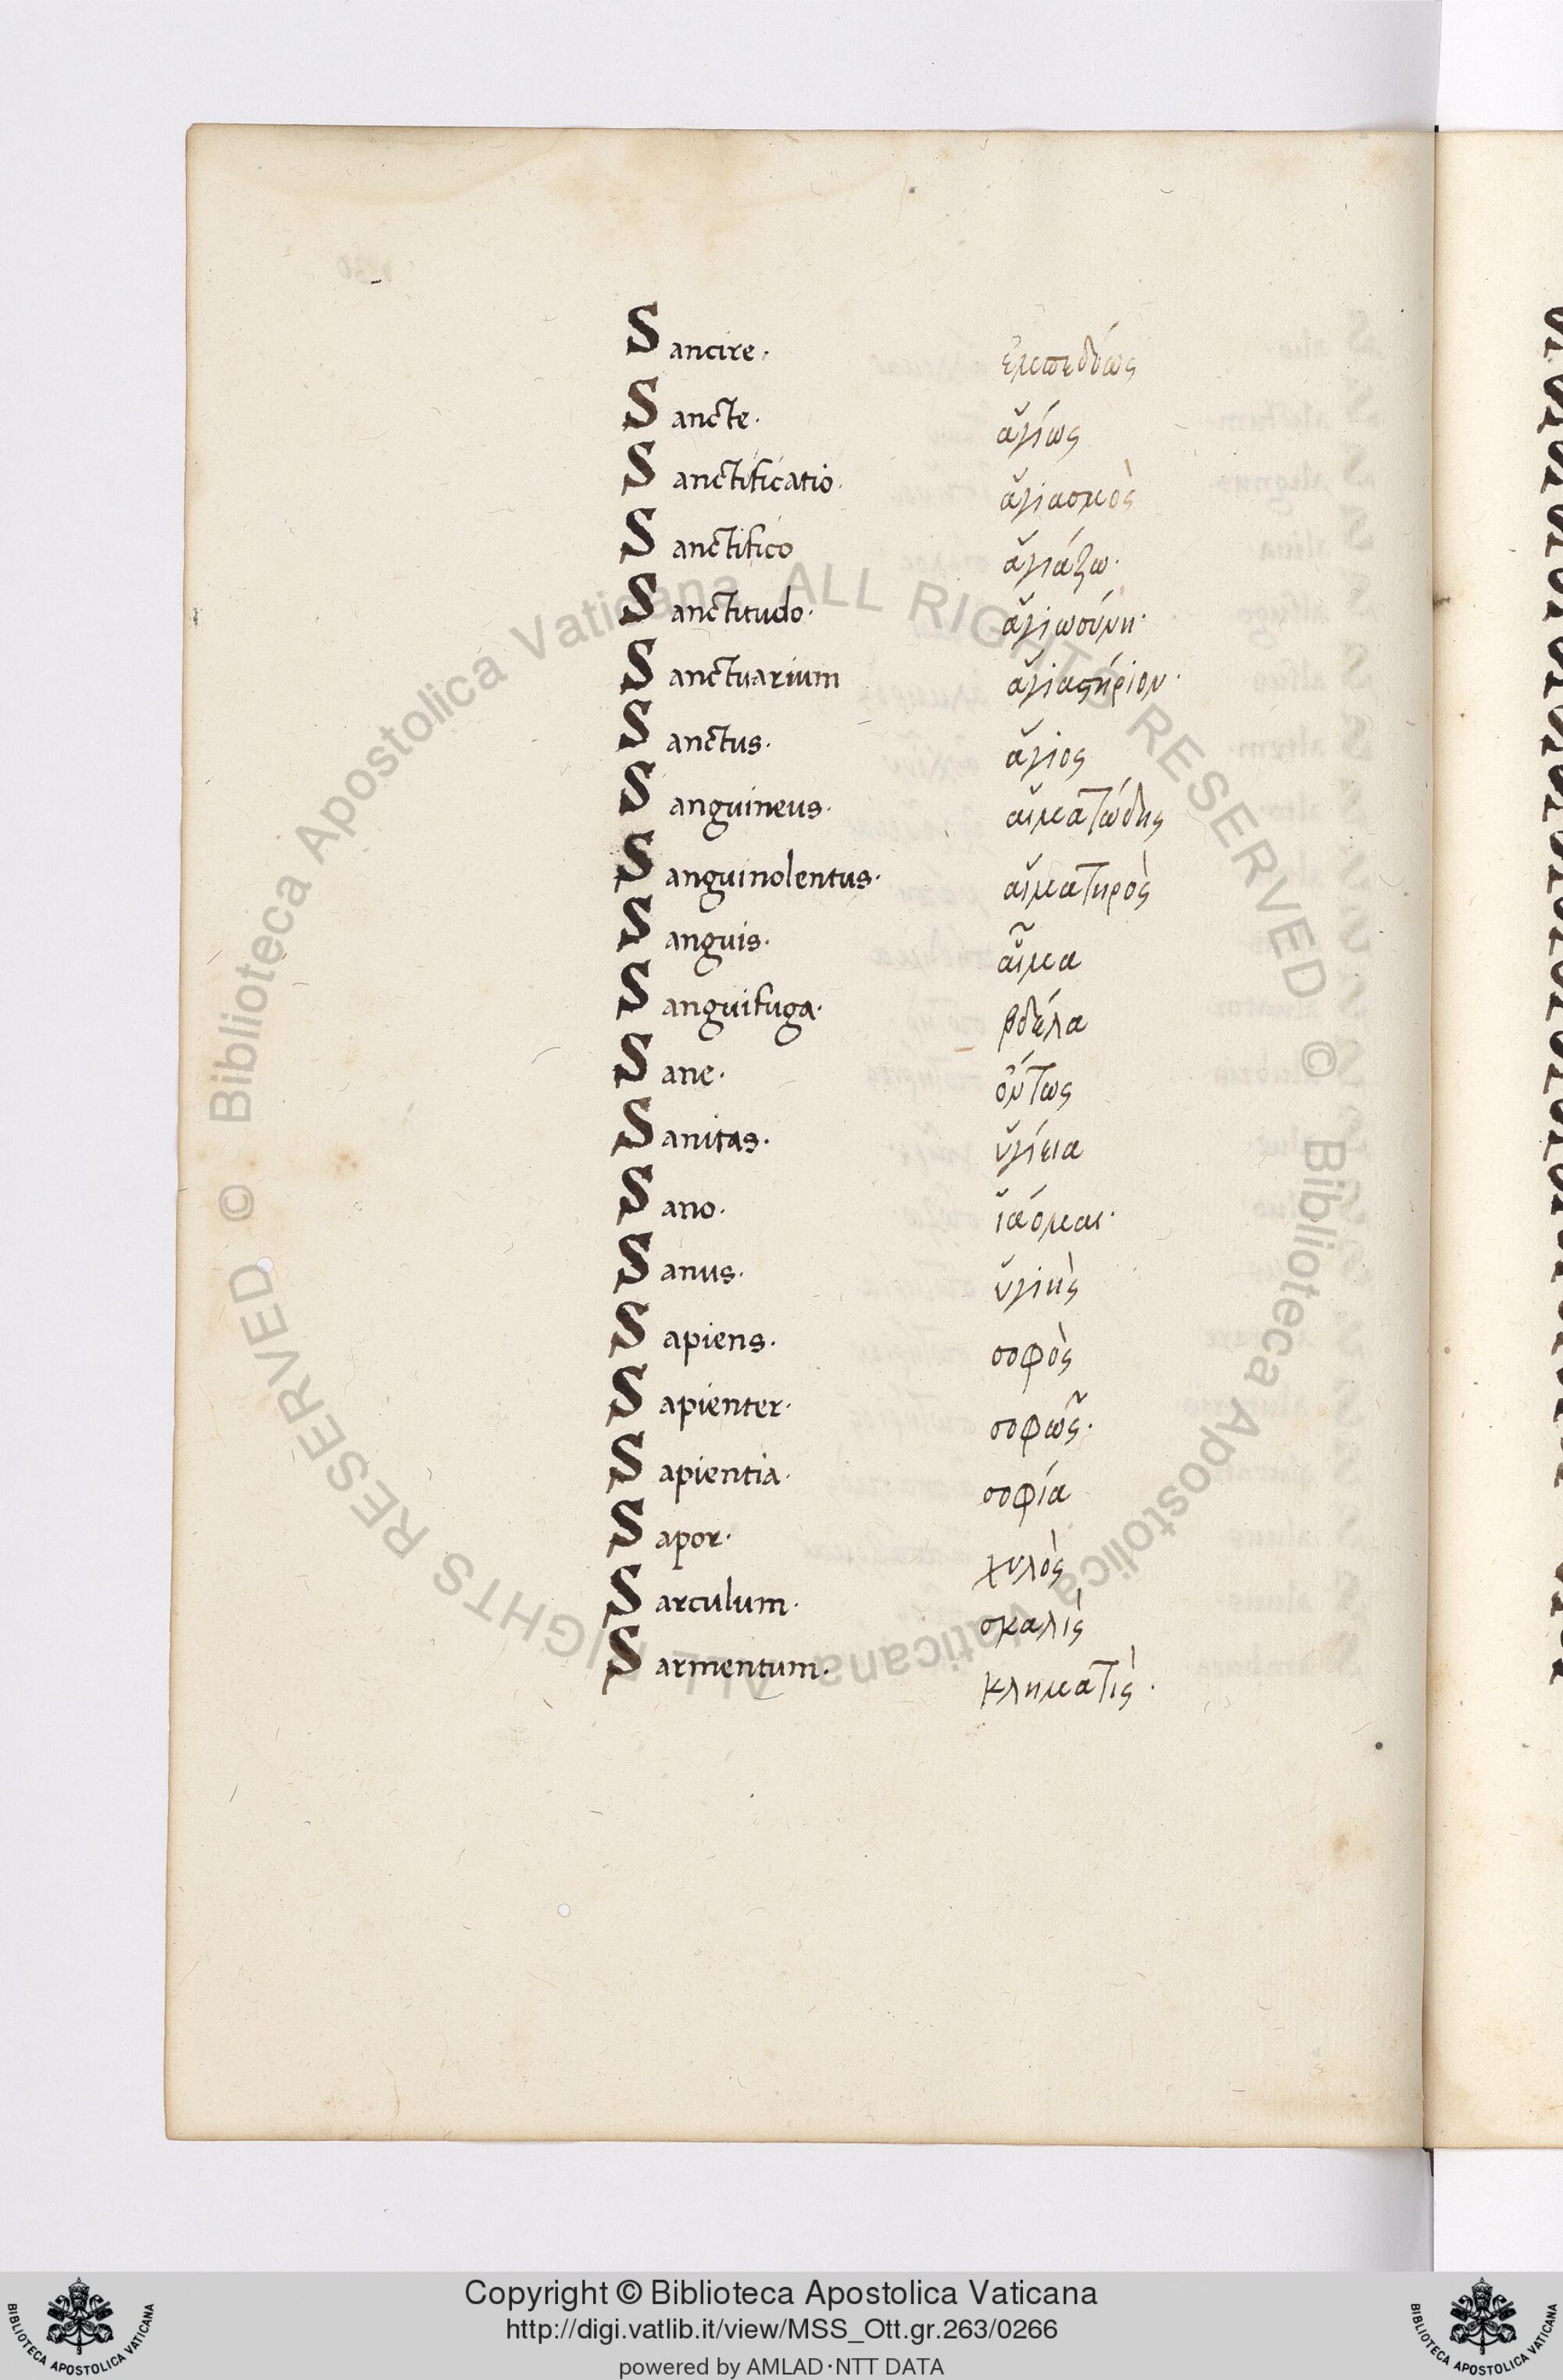 Sancire. ἐμπεδόως
Sancte. ἁγίως
Sanctificatio. ἁγιασμὸς
Sanctifico ἁγιάζω.
Sanctitudo. ἁγιωσύνη.
Sanctuarium ἁγιαστήριον.
Sanctus. ἅγιος
Sanguineus. αἱματώδης
Sanguinolentus. αἱματηρὸς
Sanguis. αἷμα
Sanguisuga. βδέλα
Sane. ὄντως
Sanitas. ὑγίεια
Sano. ἰάομαι.
Sanus. ὑγιὴς
Sapiens. σοφὸς
Sapienter. σοφῶς.
Sapientia. σοφία
Sapor. χυλὸς
Sarculum. σκαλὶς
Sarmentum. κληματὶς.
© Biblioteca Apostolica Vaticana ALL RIGHTS RESERVED
© Biblioteca Apostolica Vaticana ALL RIGHTS RESERVED
Copyright © Biblioteca Apostolica Vaticana
http://digi.vatlib.it/view/MSS_Ott.gr.263/0266
powered by AMLAD·NTT DATA
BIBLIOTECA APOSTOLICA VATICANA
BIBLIOTECA APOSTOLICA VATICANA